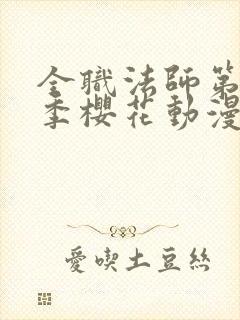 全職法師第
季櫻花動漫
愛喫土豆絲